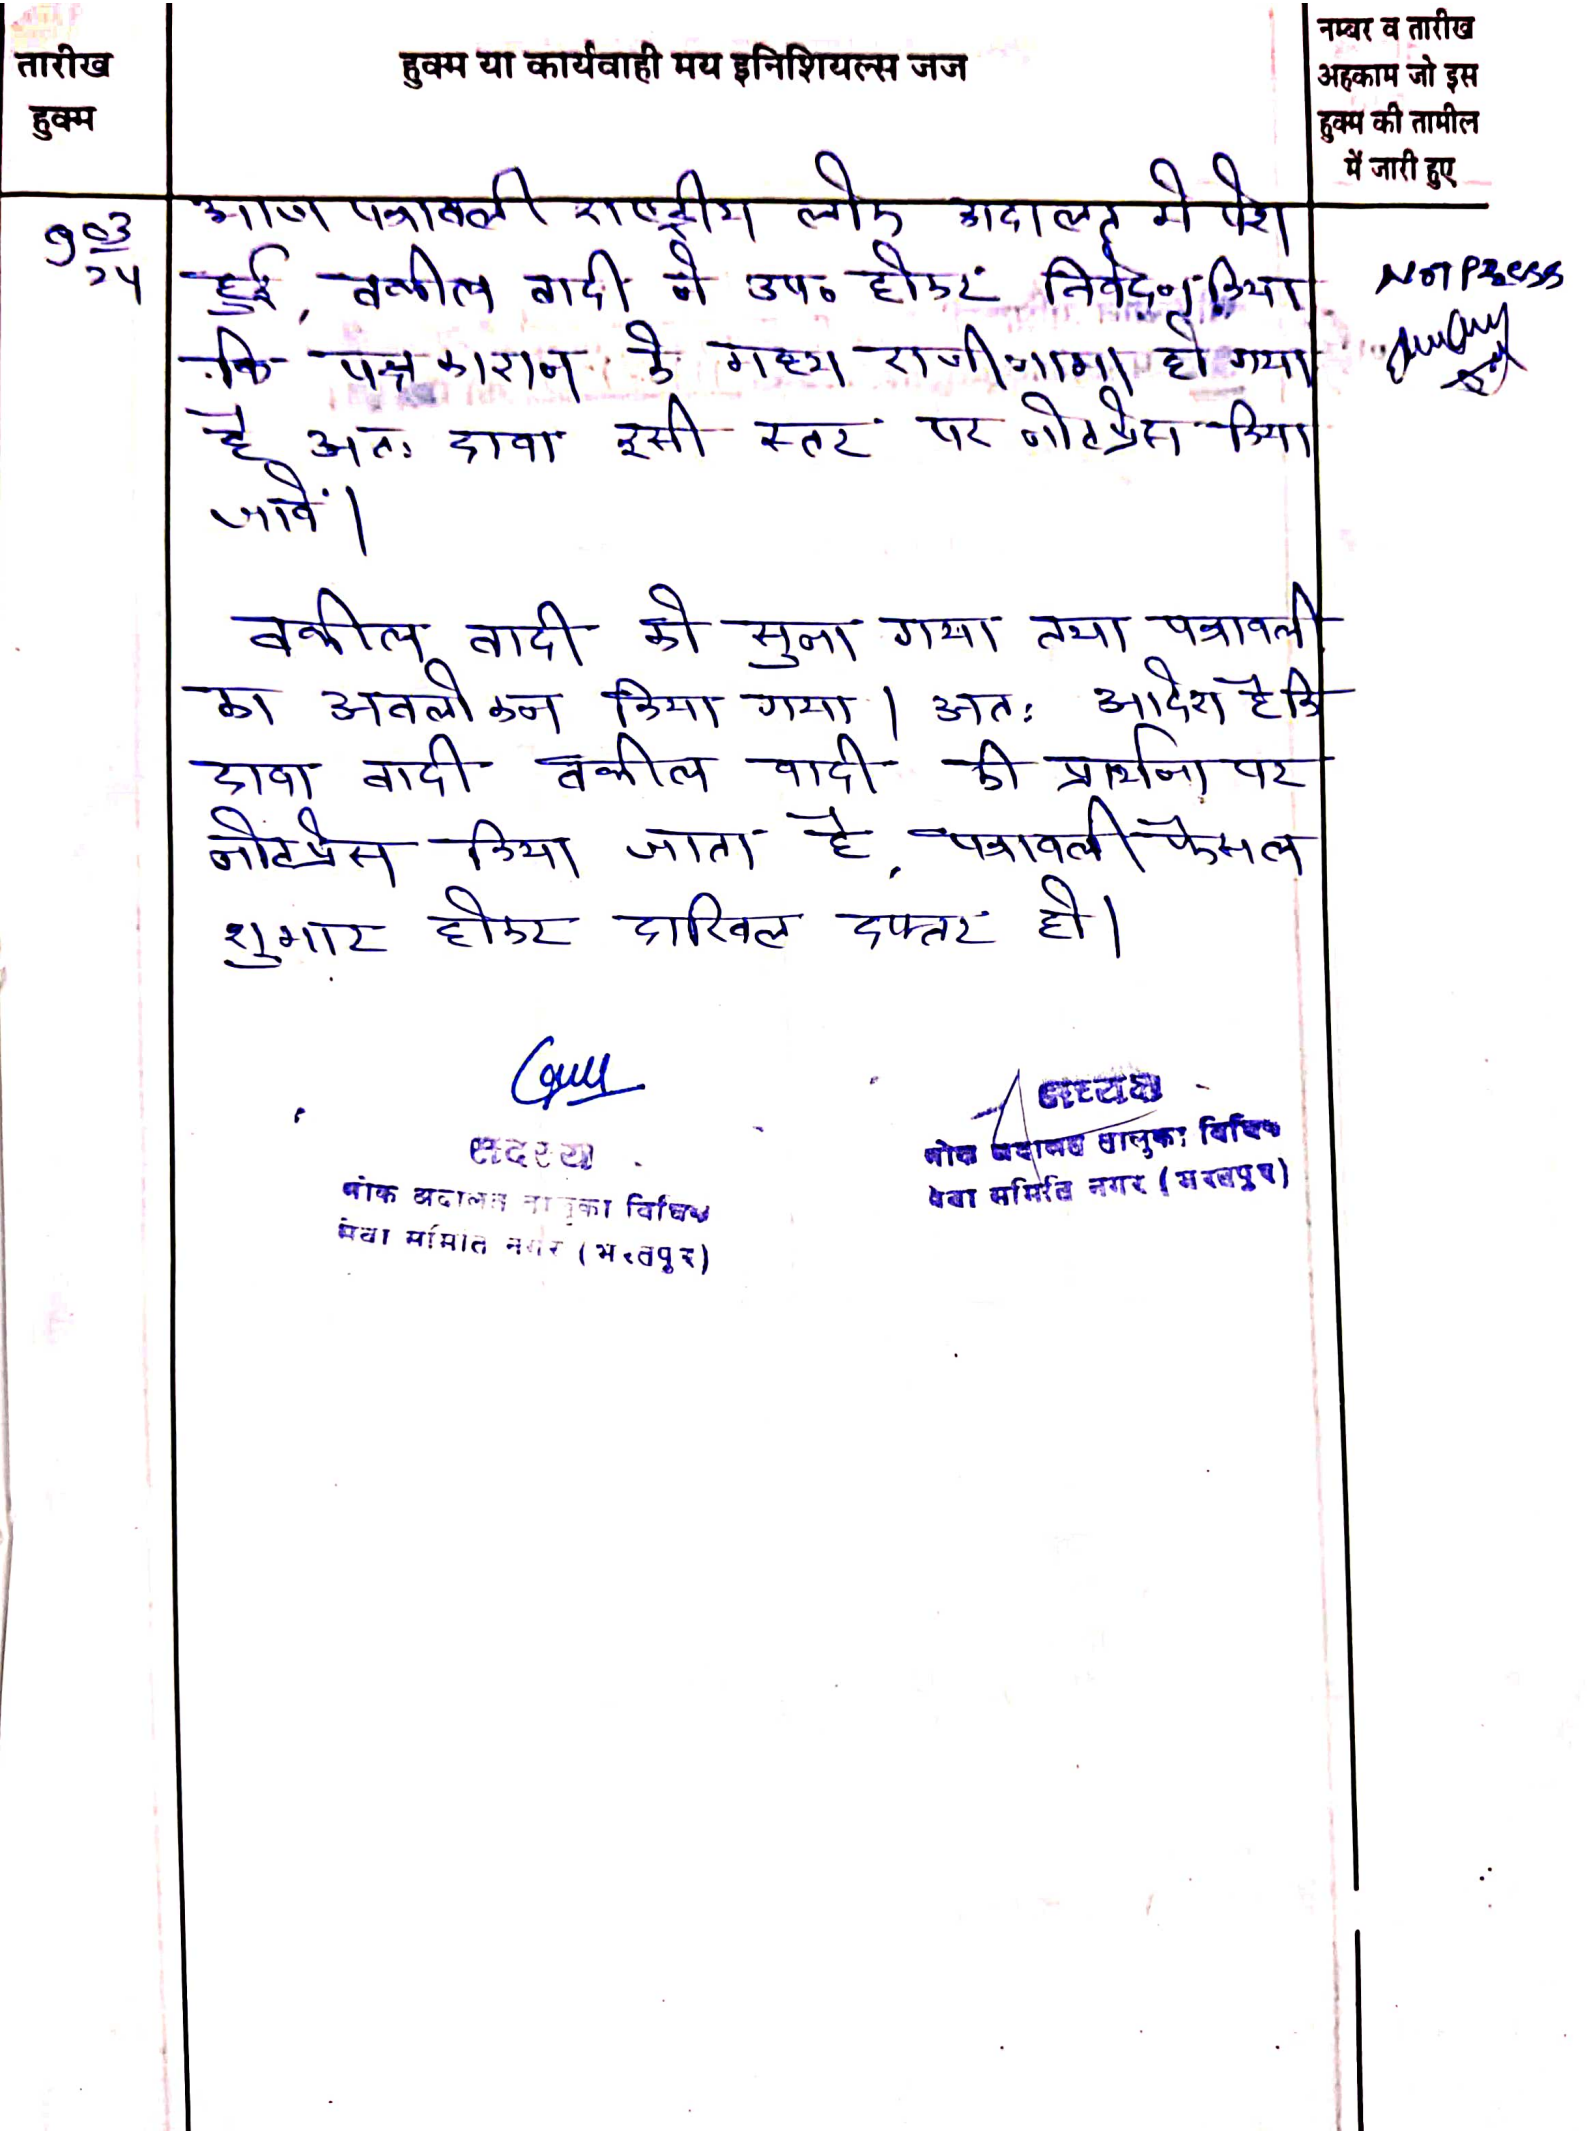 तारीख
हुक्म
हुक्म या कार्यवाही मय इनिशियल्स जज
नम्बर व तारीख
अहकाम जो इस
हुक्म की तामील
में जारी हुए
9 03
24
आज पत्रावली राष्ट्रीय लोक अदालत मे पेश
हुई, वकील वादी ने उप० होकर निवेदन किया
कि पक्षकारान के मध्य राजीनामा हो गया
है अतः दावा इसी स्तर पर नोटप्रेस किया
जावें।
Not Press
वकील वादी को सुना गया तथा पत्रावली
का अवलोकन किया गया। अतः आदेश है कि
दावा वादी वकील वादी की प्रार्थना पर
नोटप्रेस किया जाता है, पत्रावली फैसल
शुमार होकर दाखिल दफ्तर हो।
सदस्य
लोक अदालत तालुका विधिक
सेवा समिति नगर (भरतपुर)
अध्यक्ष
लोक अदालत तालुका विधिक
सेवा समिति नगर (भरतपुर)